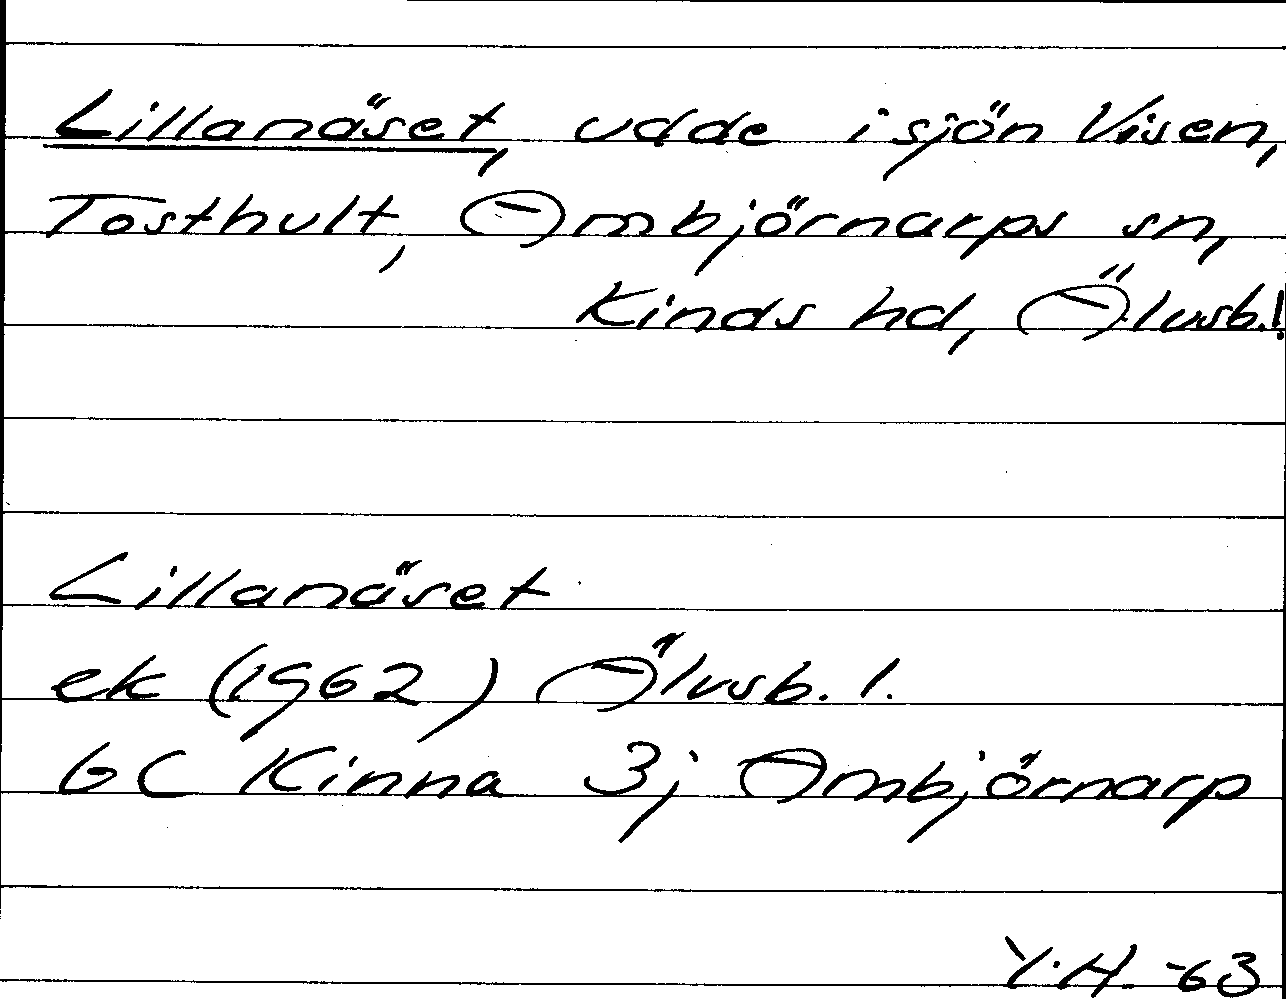 Lillanäset, udde i sjön Visen,
Tosthult, Ambjörnarps sn,
Kinds hd, Älvsb. l.
Lillanäset
ek (1962) Älvsb. l.
6C Kinna 3j Ambjörnarp
Y.H. -63